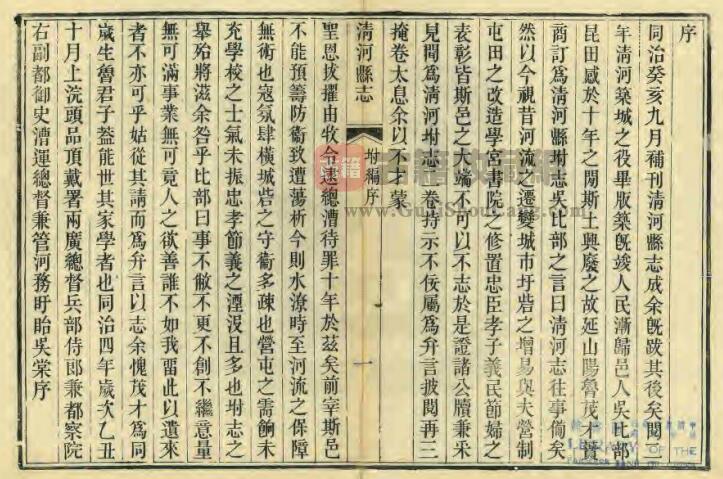 序
同治癸亥九月補刊清河縣志成余旣跋其後矣閱二
年清河築城之役畢版築旣竣人民漸歸邑人吳比部
昆田感於十年之閒斯土興廢之故延山陽魯茂才蕡
商訂爲清河縣坿志吳比部之言曰清河志往事備矣
然以今視昔河流之遷變城市圩砦之增易與夫營制
屯田之改造學宮書院之修置忠臣孝子義民節婦之
表彰皆斯邑之大端不可以不志於是證諸公牘兼采
見聞爲清河坿志二卷持示不佞屬爲弁言披閱再三
掩卷太息余以不才蒙
清河縣志
坿編序
一
聖恩拔擢由牧令遞總漕待罪十年於茲矣前宰斯邑
不能預籌防衞致遭蕩析今則水潦時至河流之保障
無術也寇氛肆橫城砦之守衞多疎也營屯之需餉未
充學校之士氣未振忠孝節義之湮沒且多也坿志之
舉殆將滋余咎乎比部曰事不敝不更不創不繼意量
無可滿事業無可竟人之欲善誰不如我畱此以遺來
者不亦可乎姑從其請而爲弁言以志余愧茂才爲同
歲生魯君子葢能世其家學者也同治四年歲次乙丑
十月上浣頭品頂戴署兩廣總督兵部侍郎兼都察院
右副都御史漕運總督兼管河務盱眙吳棠序
書籍
古籍收藏網
www.GuJiShouCang.com
LIBRARY OF THE